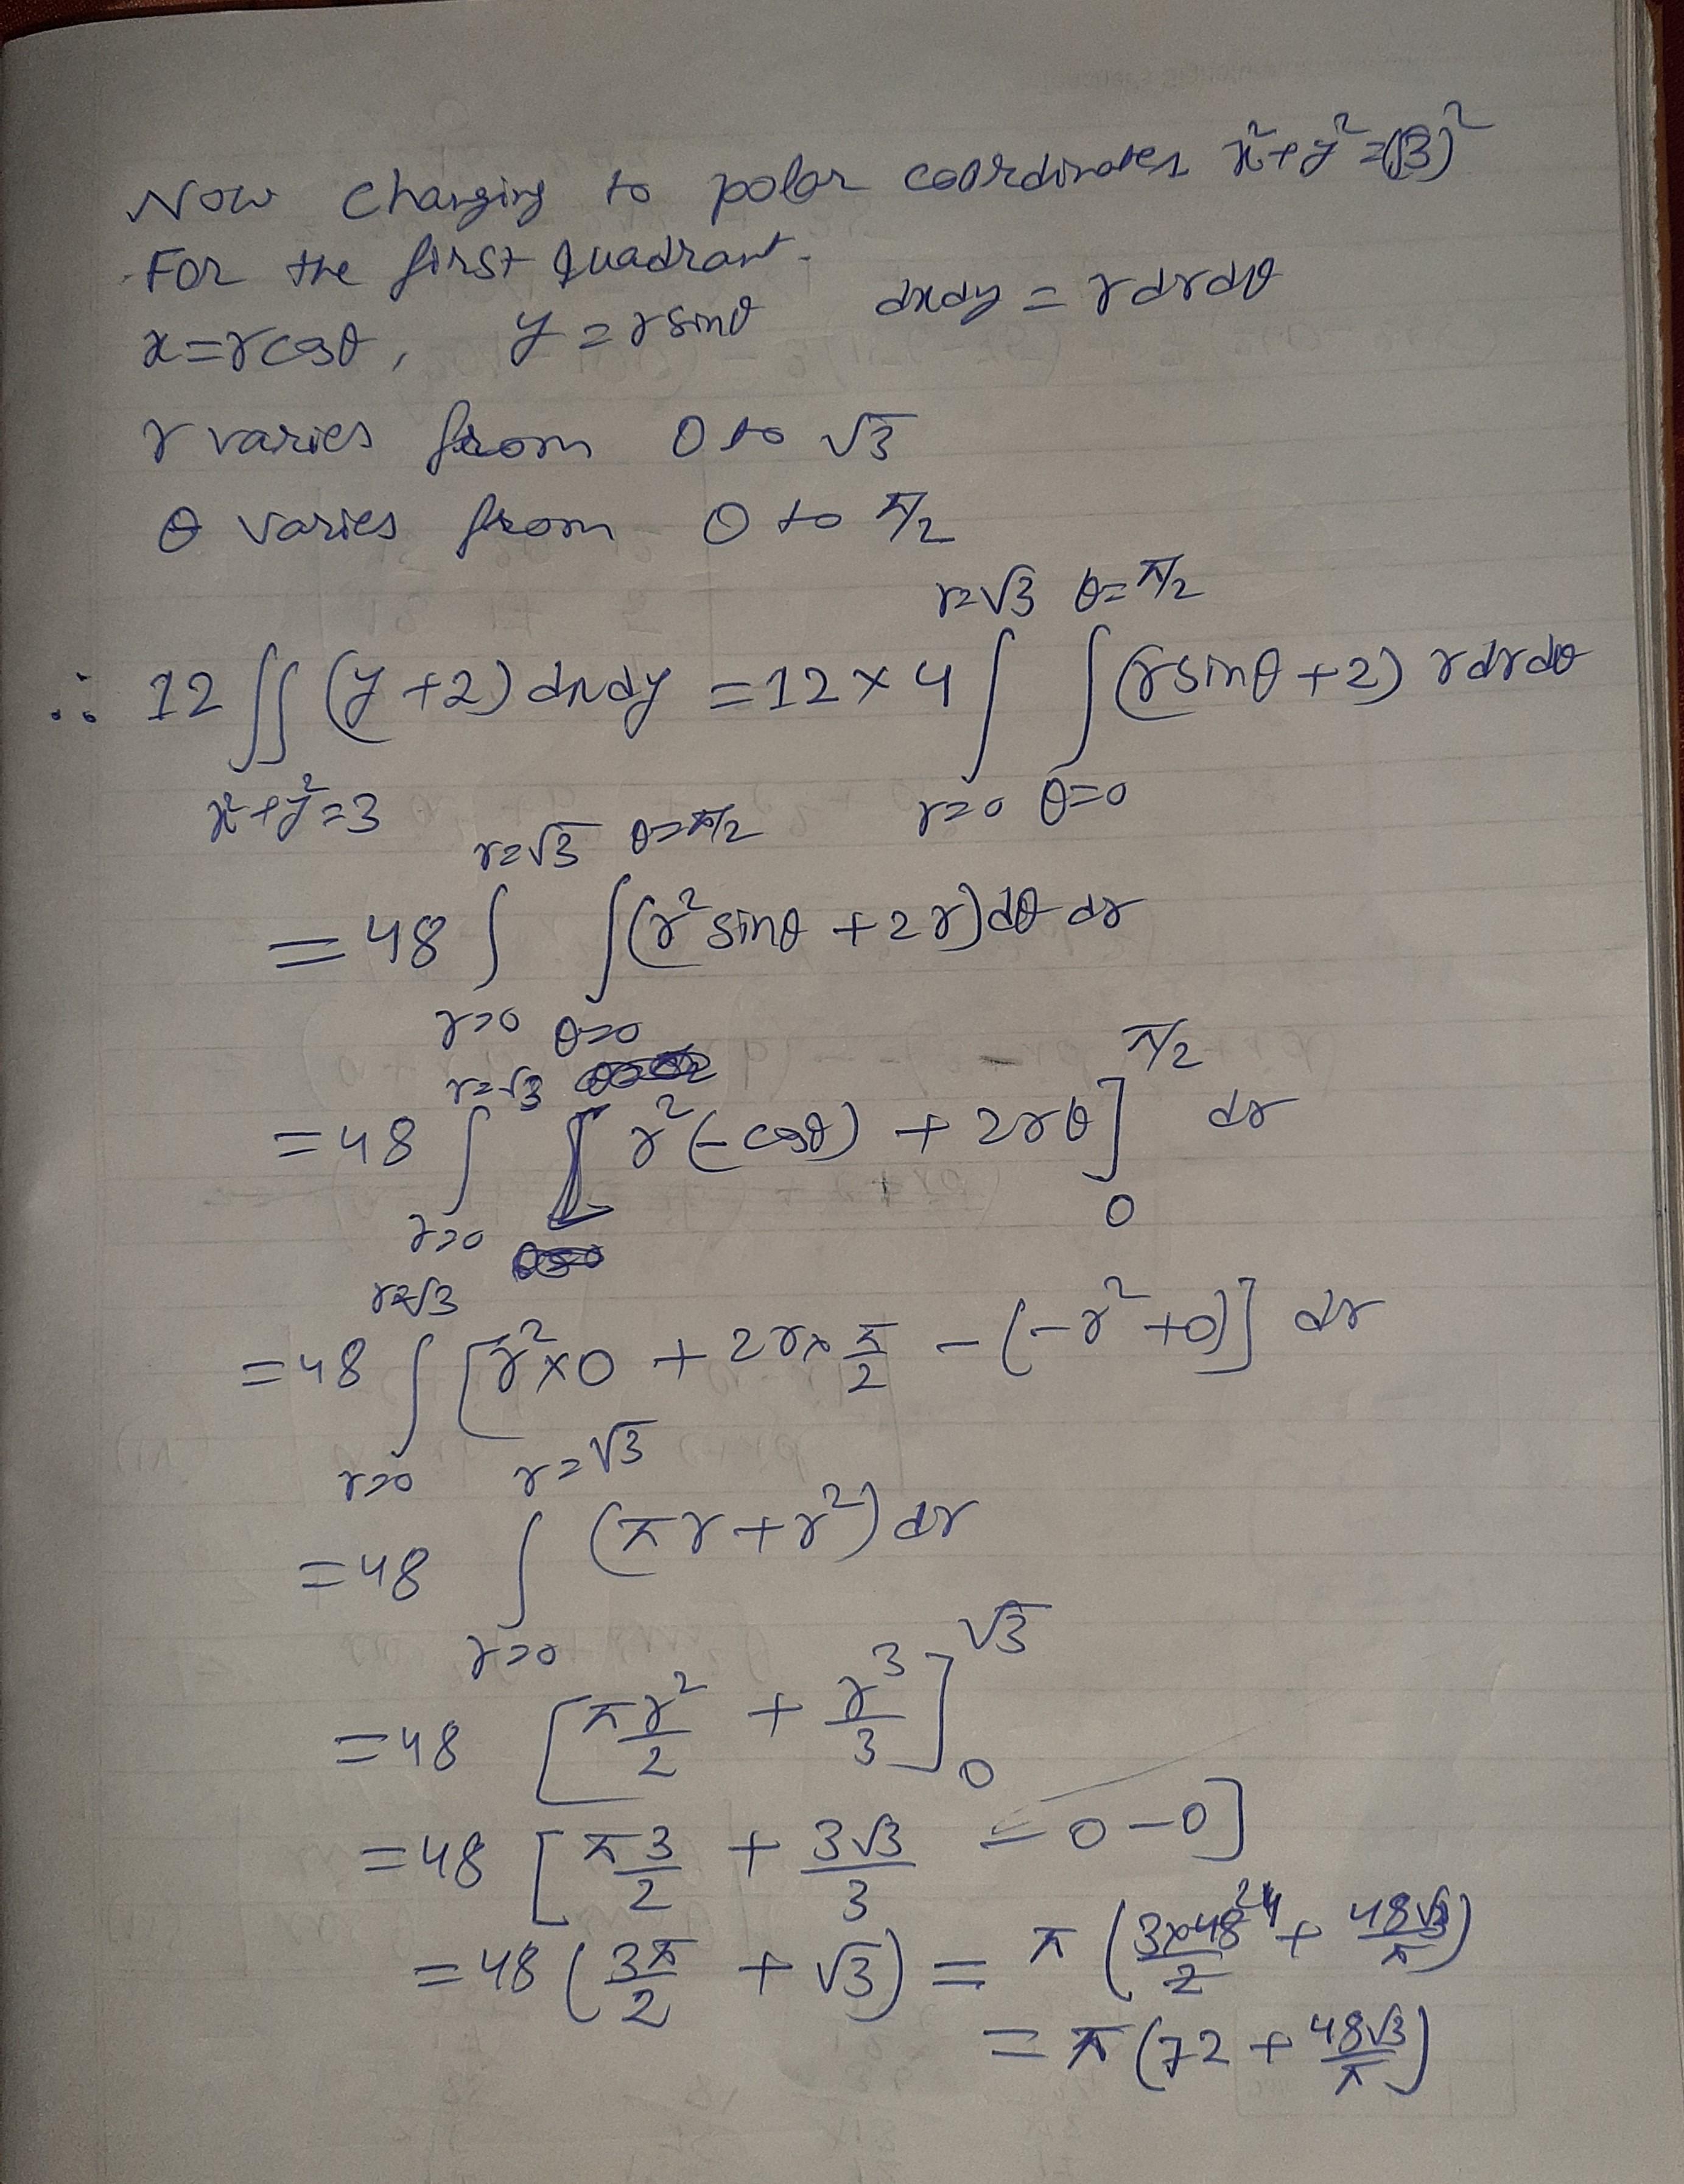 Now changing to polar coordinates x²+y²=(√3)²
For the first quadrant.
x=rcosθ, y=rsinθ dxdy = rdrdθ
r varies from 0 to √3
θ varies from 0 to π/2
∴ 12 ∬_{x²+y²=3} (y+2) dxdy = 12×4 ∫_{r=0}^{r=√3} ∫_{θ=0}^{θ=π/2} (rsinθ+2) rdrdθ
=48 ∫_{r=0}^{r=√3} ∫_{θ=0}^{θ=π/2} (r²sinθ+2r)dθ dr
=48 ∫_{r=0}^{r=√3} [r²(-cosθ) + 2rθ]_{0}^{π/2} dr
=48 ∫_{r=0}^{r=√3} [r²×0 + 2r×π/2 - (-r²+0)] dr
=48 ∫_{r=0}^{r=√3} (πr+r²)dr
=48 [πr²/2 + r³/3]_{0}^{√3}
=48 [π3/2 + 3√3/3 - 0-0]
=48 (3π/2 + √3) = π (3×48²⁴/2 + 48√3/π)
= π (72 + 48√3/π)